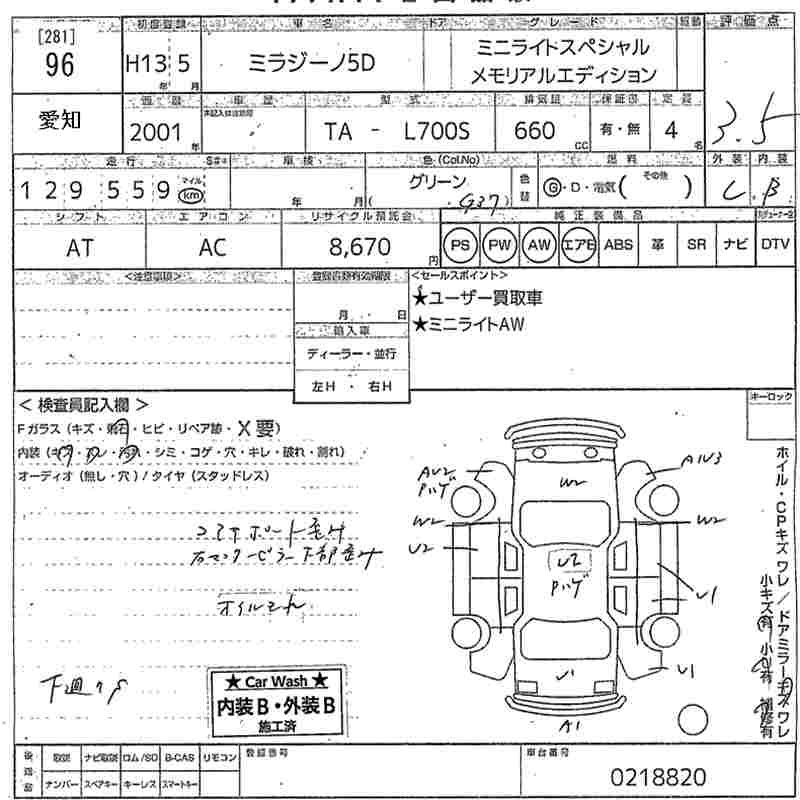 [281]
96
初度登録 車名 ドア グレード 評価点
H13年 5月
ミラジーノ5D
ミニライトスペシャル
メモリアルエディション
3.5
愛知
車歴 型式 排気量 定員
2001年
TA - L700S
660 CC
有・無
4名
走行 車検 色(Col.No) 燃料 外装 内装
129559 マイル km
年 月
グリーン
( G37 )
色替
G・D・電気( その他 )
C B
シフト エアコン リサイクル預託金 純正装備品
AT
AC
8,670円
PS PW AW エアB ABS 革 SR ナビ DTV
<注意事項>
登録書類有効期限
<セールスポイント>
月 日
★ユーザー買取車
★ミニライトAW
輸入車
ディーラー・並行
左H ・ 右H
キーロック
< 検査員記入欄 >
Fガラス (キズ・飛石・ヒビ・リペア跡・X要)
内装 (キズ・スレ・汚れ・シミ・コゲ・穴・キレ・破れ・割れ)
オーディオ (無し・穴) / タイヤ (スタッドレス)
コアサポート歪み
右センターピラー下部歪み
オイルモレ
下廻りS
AU2
Pハゲ
W2
U2
W2
AU3
W2
U2
Pハゲ
U1
U1
U1
A1
ホイル・CPキズ ワレ / ドアミラーキズ ワレ
小キズ有 小凹有 補修有
★ Car Wash ★
内装B・外装B
施工済
後送品
取説 ナビ取説 ロム/SD B-CAS リモコン
ナンバー スペアキー キーレス スマートキー
登録番号
車台番号
0218820